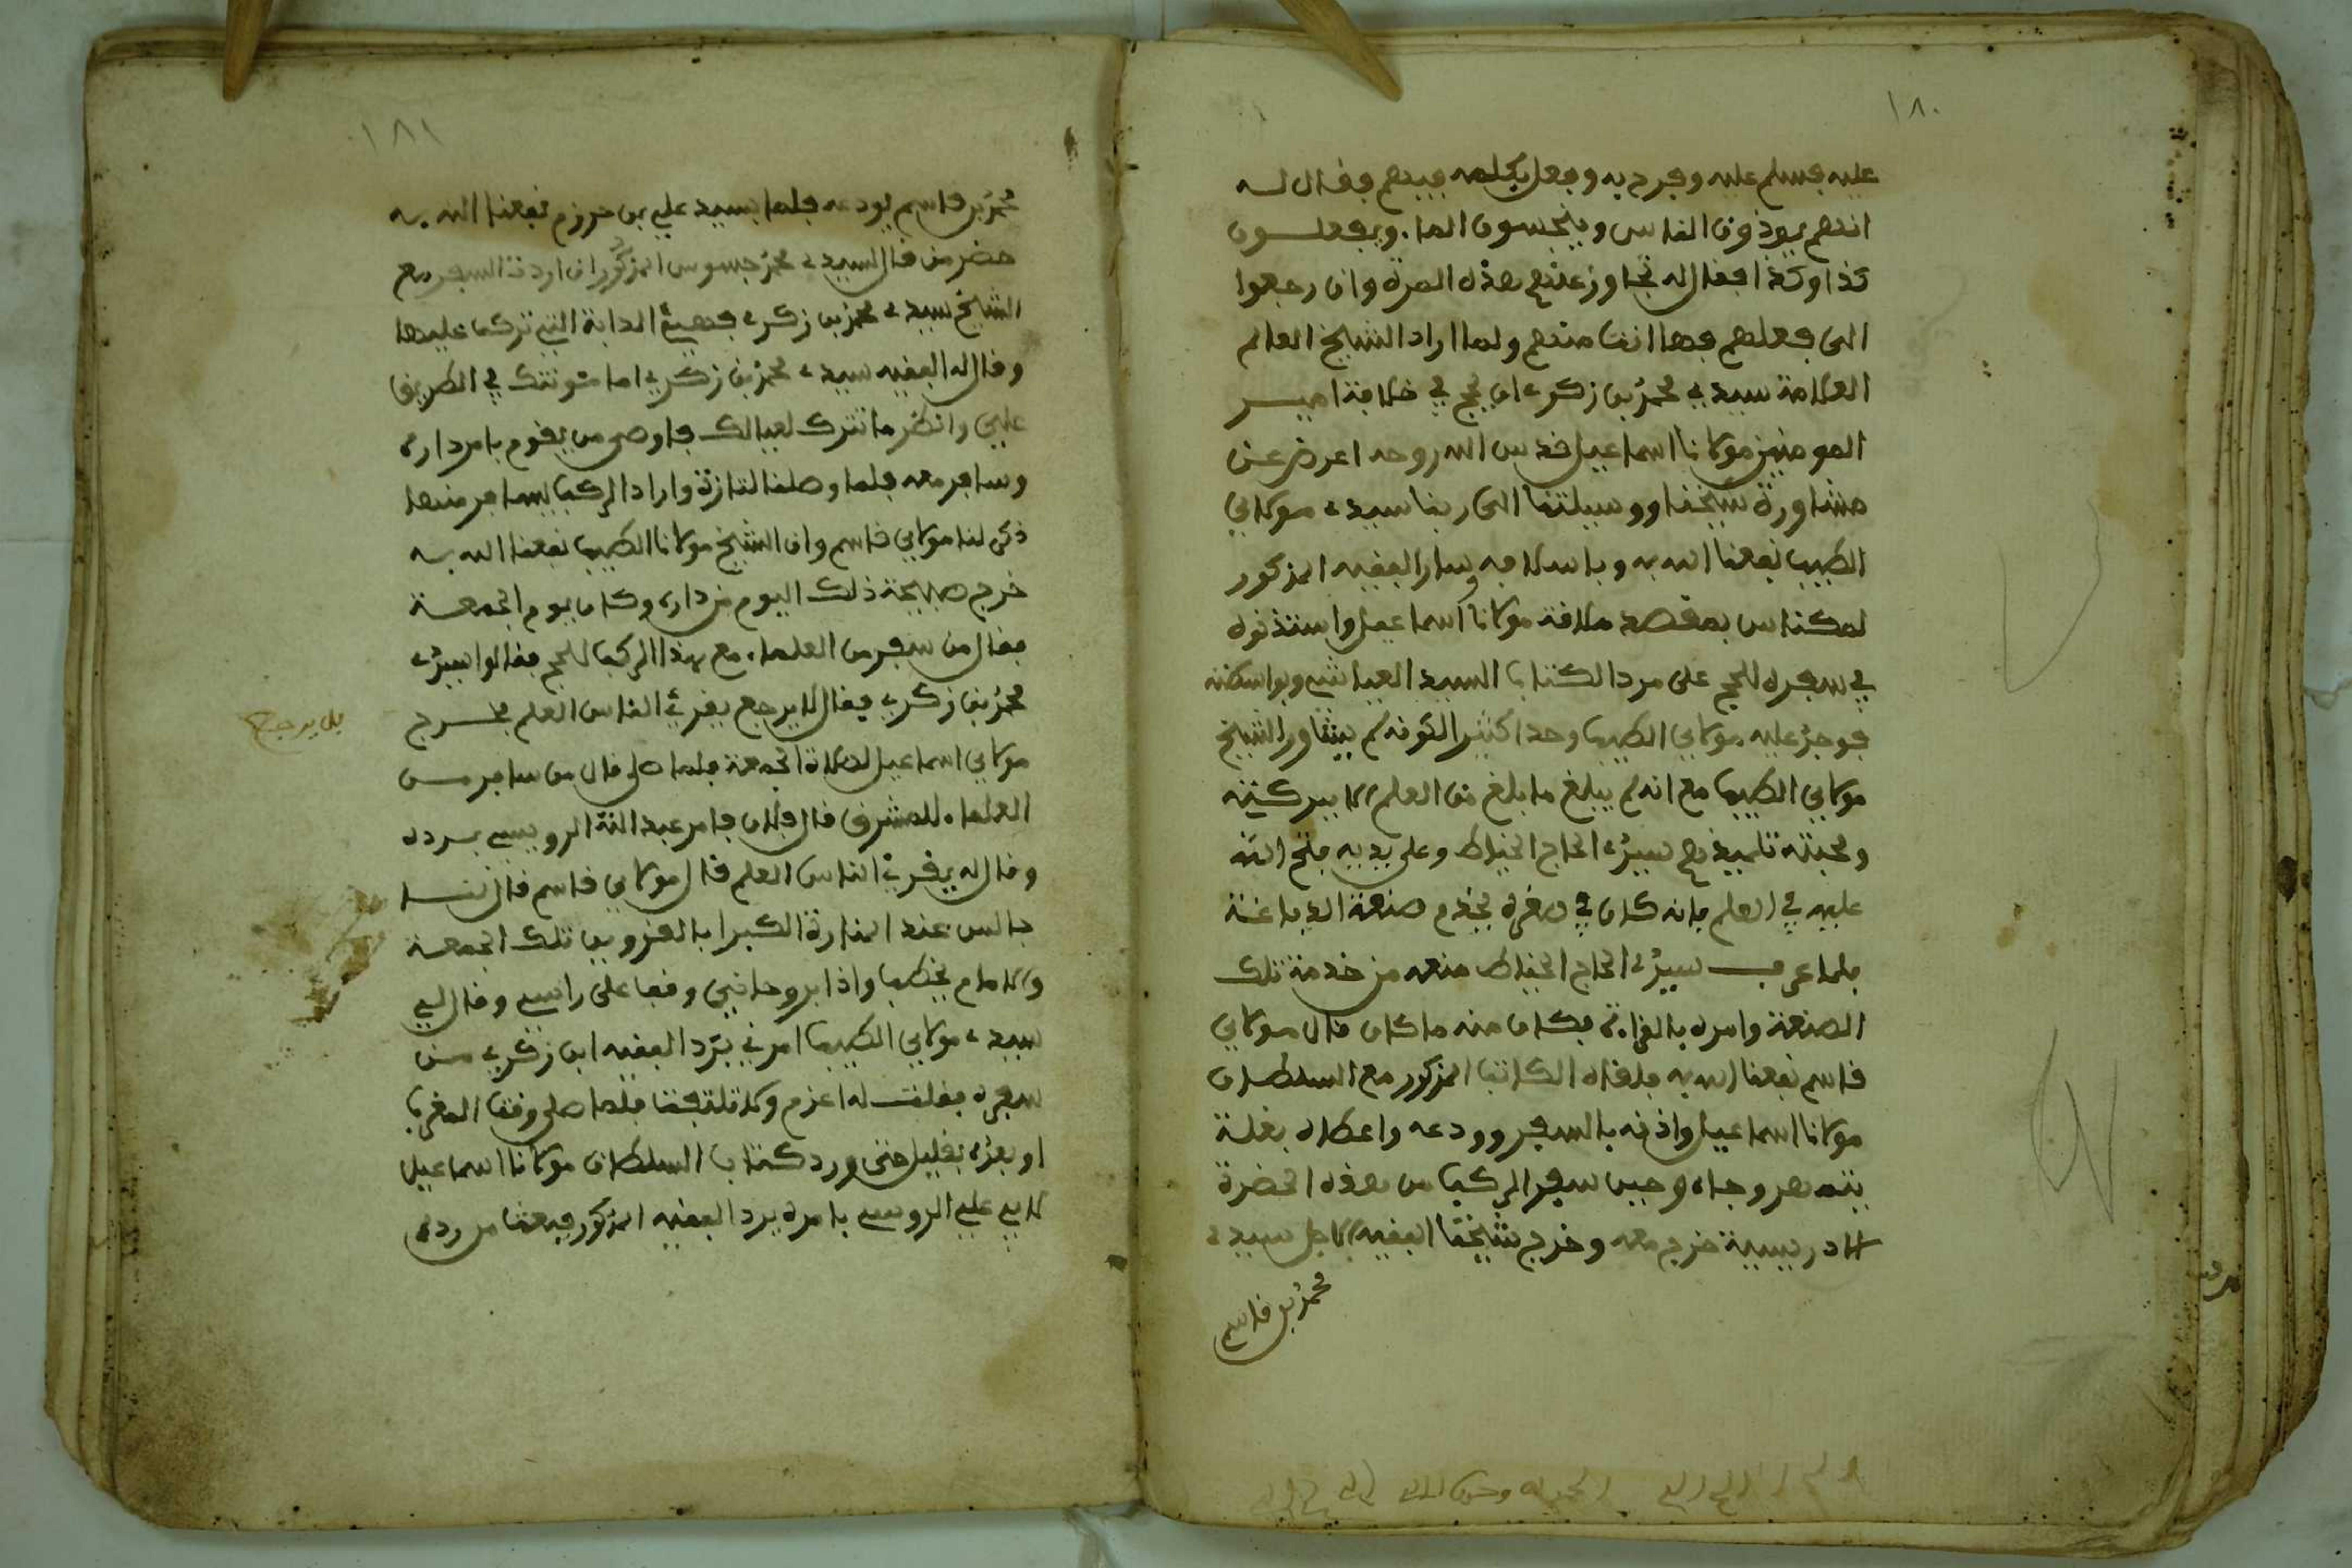 ١٨٠
عليه فسلم عليه وفرح به وجعل يكلمه فيهم فقال له
انهم يوذون الناس وينجسون الما. ويفعلون
كذا وكذا فقال له تجاوز عنهم هذه المرة وان رجعوا
الى فعلهم فها انت منهم ولما اراد الشيخ العالم
العلامة سيدي محمد بن زكري ان يحج في خلافة امير
المومنين مولانا اسماعيل قدس الله روحه اعرض عن
مشاورة شيخنا ووسيلتنا الى ربنا سيدي مولاي
الطيب نفعنا الله به وباسلافه وسار الفقيه المذكور
لمكناس بقصد ملاقة مولانا اسماعيل واستذنوه
في سفره للحج على مرد الكتاب السيد العياشي وبواسطته
فوجد عليه مولاي الطيب وجدا كثيرا لكونه لم يشاور الشيخ
مولاي الطيب مع انه لم يبلغ ما بلغ من العلم الا ببركته
ومحبته تلميذهم سيدي الحاج الخياط وعلى يديه فتح الله
عليه في العلم فانه كان في صغره يخدم صنعة الدباغة
فلما عرف سيدي الحاج الخياط منعه من خدمة تلك
الصنعة وامره بالقراءة فكان منه ما كان قال مولاي
قاسم نفعنا الله به فلقاه الكاتب المذكور مع السلطان
مولانا اسماعيل واذنه بالسفر وودعه واعطاه بغلة
وجاه وحين سفر الركب من هذه الحضرة
الادريسية خرج معه وخرج شيخنا الفقيه الاجل سيدي
محمد بن قاسم
١٨١
محمد بن قاسم يودعه فلما بسيد علي بن حرزم نفعنا الله به
حضر من قال لسيدي محمد جسوس المذكور ان اردت السفر مع
الشيخ سيدي محمد بن زكري فهيئ الدابة التي تركب عليها
وقال له الفقيه سيدي محمد بن زكري اما مئونتك في الطريق
علي وانظر ما تترك لعيالك فاوصى من يقوم بامر داره
وسافر معه فلما وصلنا لتازة واراد الركب ليسافر منها
ذكر لنا مولاي قاسم وان الشيخ مولانا الطيب نفعنا الله به
خرج صبيحة ذلك اليوم من داره وكان يوم الجمعة
فقال من سفر من العلما. مع هذا الركب للحج فقالوا سيدي
محمد بن زكري فقال لا يرجع يقرئ الناس العلم فخرج
بل يرجع
مولاي اسماعيل لصلاة الجمعة فلما صلى قال من سافر من
العلما. للمشرق قال فلان فامر عبد الله الروسي برده
وقال له يقرئ الناس العلم قال مولاي قاسم قال انا
جالس عند المنارة الكبرا بالقرويين تلك الجمعة
والامام يخطب واذا بروحاني وقف على راسي وقال لي
سيدي مولاي الطيب امرني برد الفقيه ابن زكري من
سفره فقلت له اعزم ولا تلتفت فلما صلى وقت المغرب
او بعده بقليل حتى ورد كتاب السلطان مولانا اسماعيل
لابي علي الروسي بامره برد الفقيه المذكور فبعث من رده